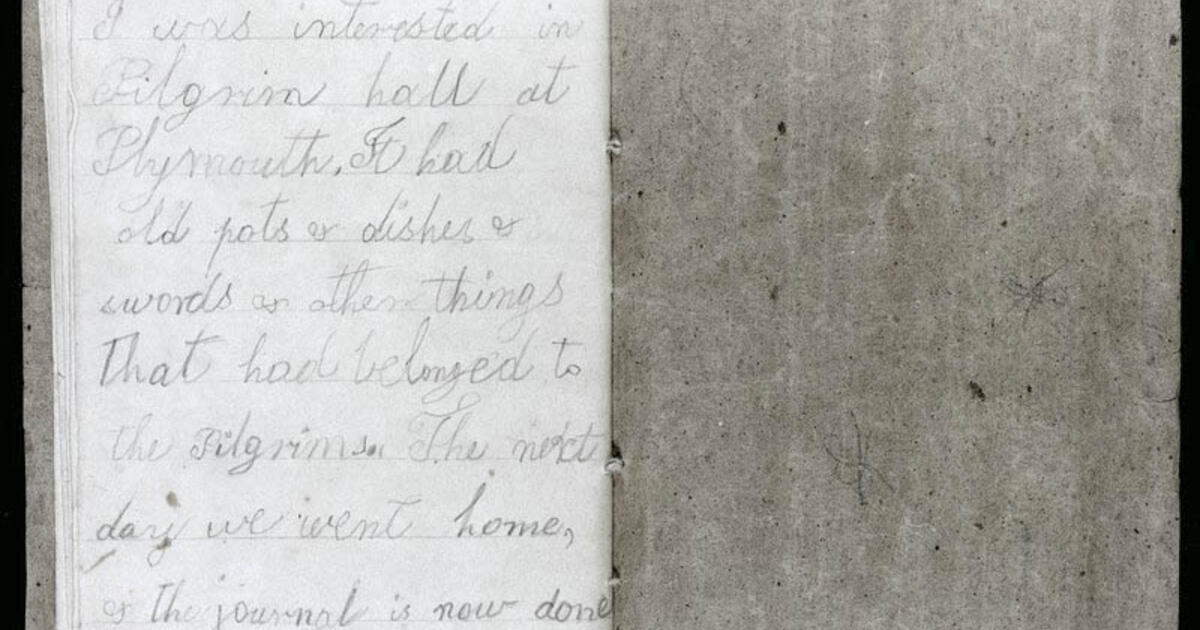 I was interested in
Pilgrim hall at
Plymouth. It had
old pots & dishes &
swords & other things
That had belonged to
the Pilgrims. The next
day we went home,
& the journal is now done